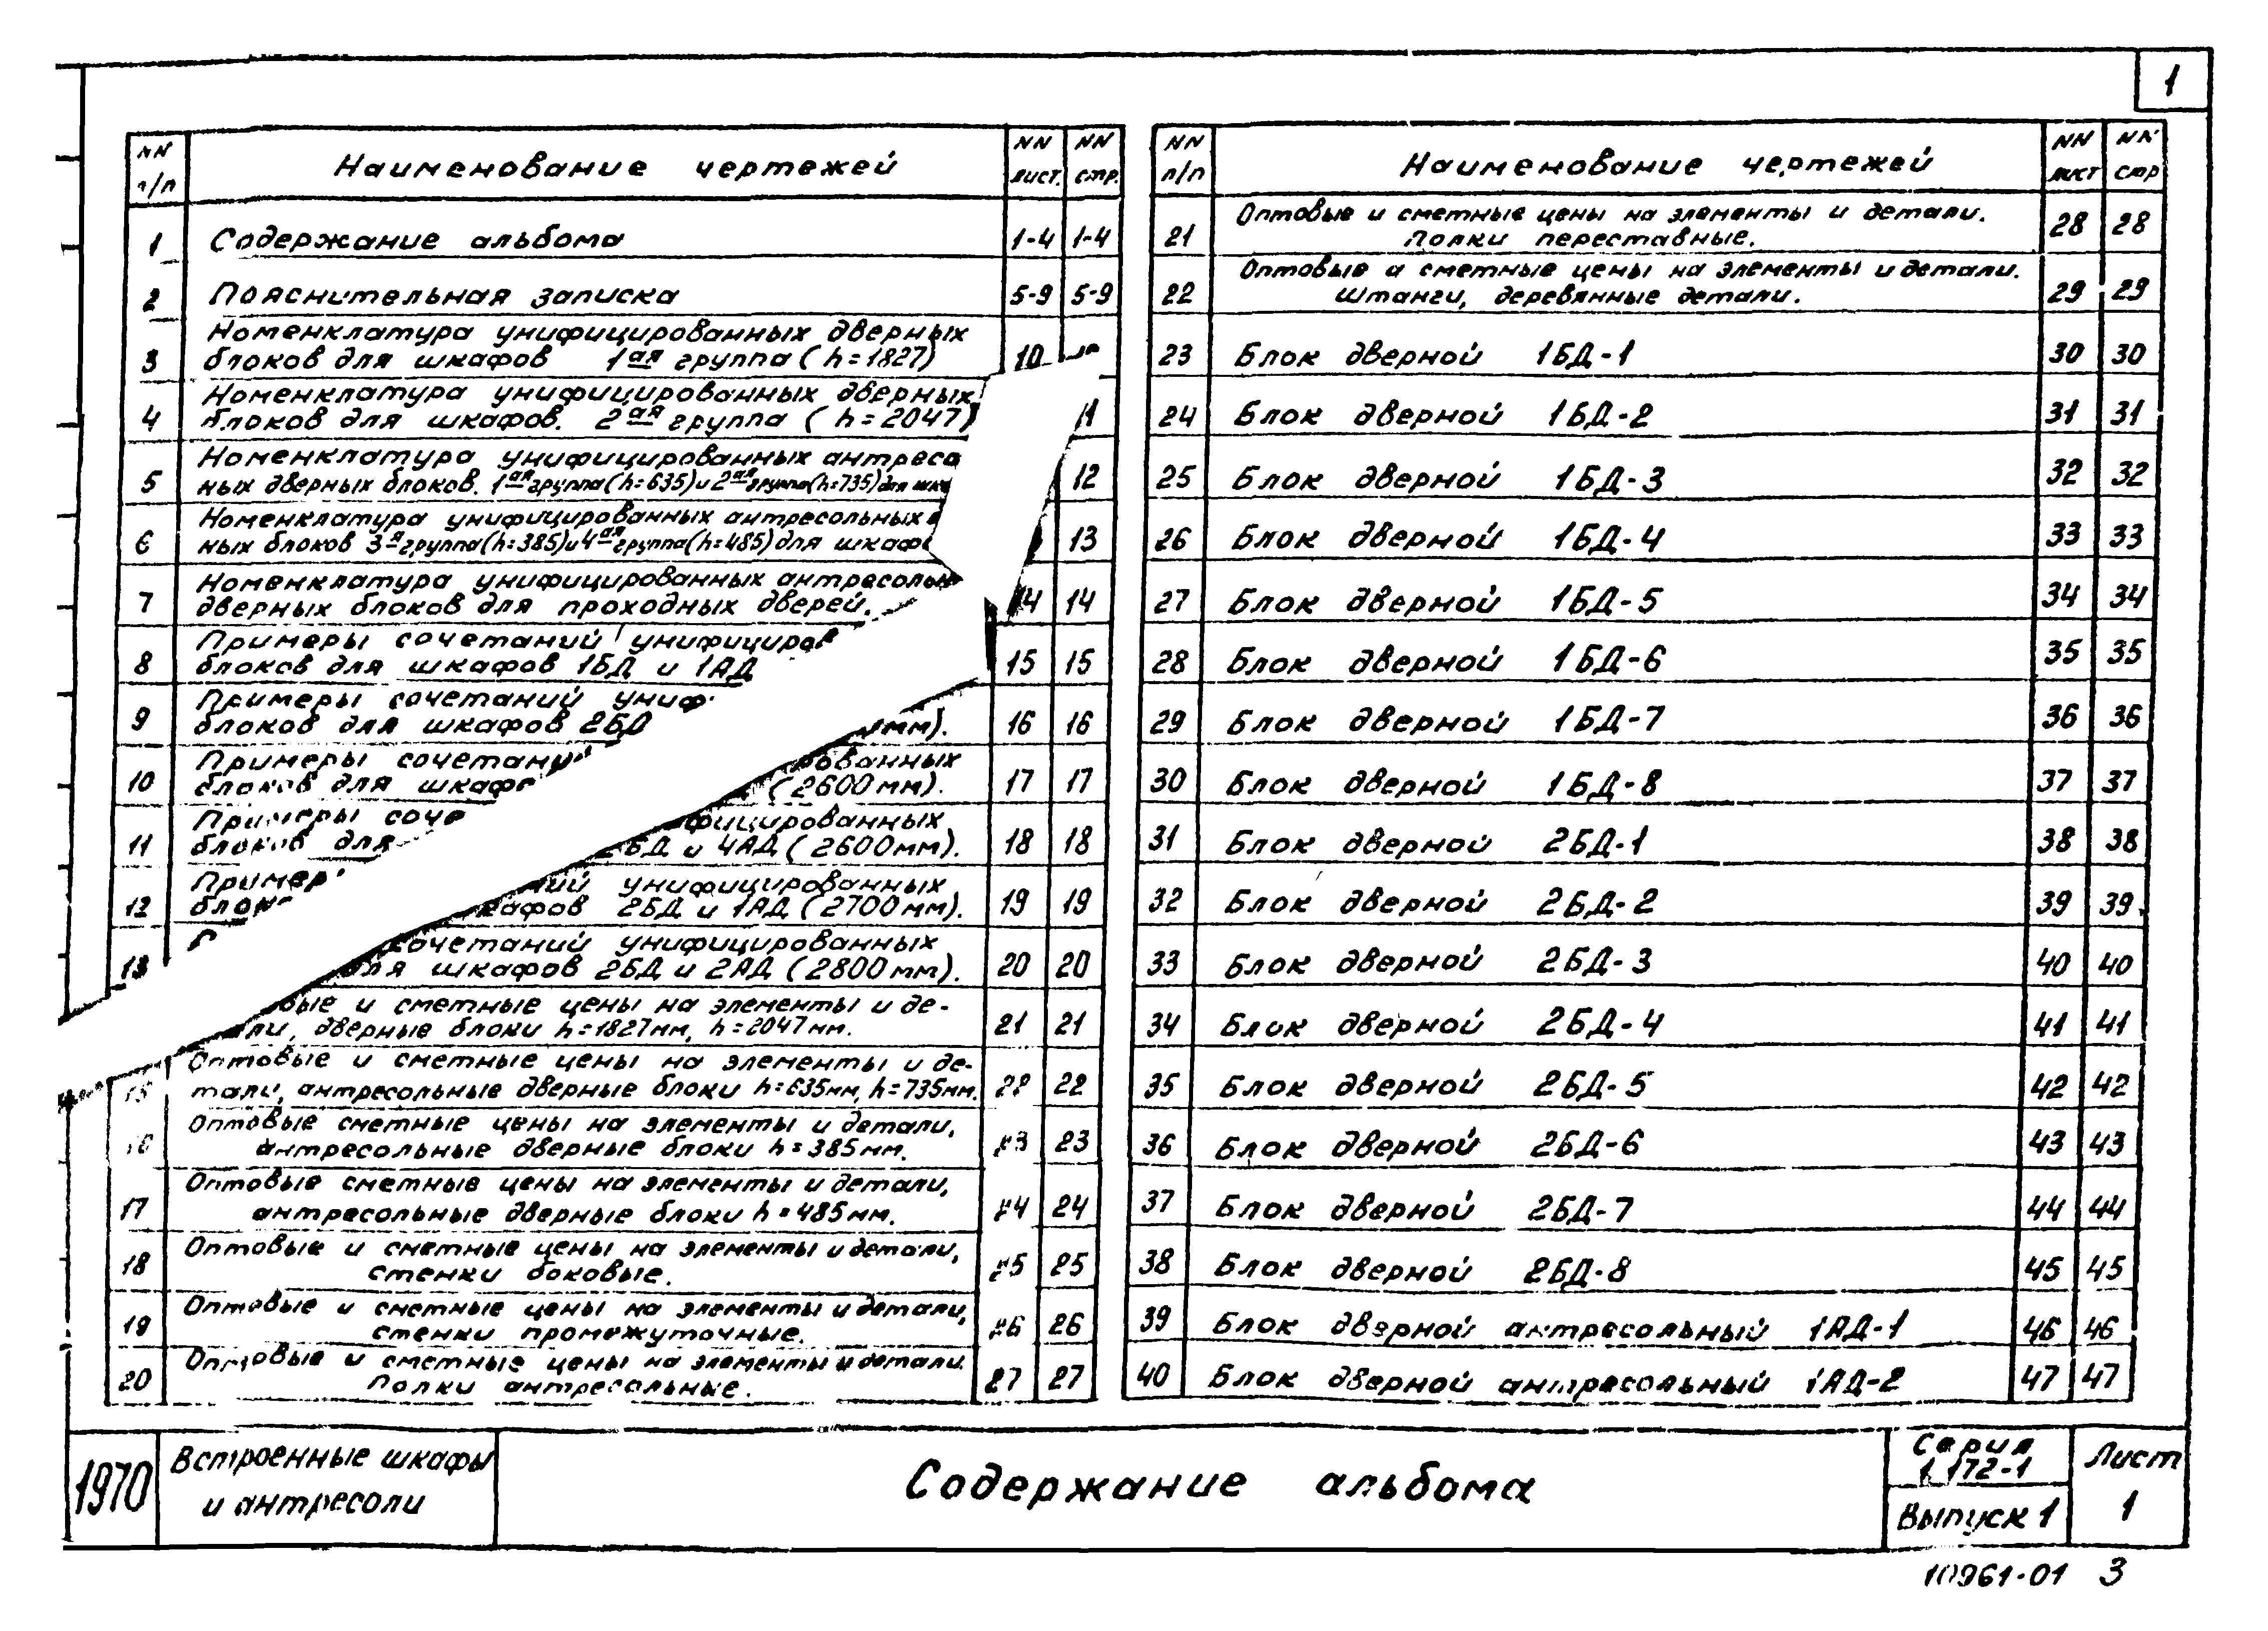 1
NN п/п Наименование чертежей NN лист. NN стр.
1 Содержание альбома 1-4 1-4
2 Пояснительная записка 5-9 5-9
Номенклатура унифицированных дверных
3 блоков для шкафов 1ая группа (h=1827) 10
Номенклатура унифицированных дверных
4 блоков для шкафов. 2ая группа (h=2047)
Номенклатура унифицированных
5 ных дверных блоков. 1ая группа (h=635) и 2ая группа (h=735) для 12
Номенклатура унифицированных антресольных
6 ных блоков 3я группа (h=385) и 4ая группа (h=485) для 13
Номенклатура унифицированных
7 дверных блоков для проходных дверей. 14
Примеры сочетаний
8 блоков для шкафов 1БД и 1АД 15 15
Примеры сочетаний
9 блоков для шкафов 2БД мм). 16 16
Примеры
10 блоков для (2600мм). 17 17
Примеры
11 блоков для 2БД и 4АД (2600мм). 18 18
унифицированных
12 2БД и 1АД (2700мм). 19 19
сочетаний унифицированных
13 для шкафов 2БД и 2АД (2800мм). 20 20
и сметные цены на элементы и де-
дверные блоки h=1827мм, h=2047мм. 21 21
Оптовые и сметные цены на элементы и де-
15 тали, антресольные дверные блоки h=635мм, h=735мм. 22 22
Оптовые сметные цены на элементы и детали,
16 антресольные дверные блоки h=385мм. 23 23
Оптовые сметные цены на элементы и детали,
17 антресольные дверные блоки h=485мм. 24 24
Оптовые и сметные цены на элементы и детали,
18 стенки боковые. 25 25
Оптовые и сметные цены на элементы и детали,
19 стенки промежуточные. 26 26
Оптовые и сметные цены на элементы и детали.
20 Полки антресольные. 27 27
NN п/п Наименование чертежей NN лист NN стр
Оптовые и сметные цены на элементы и детали.
21 Полки переставные. 28 28
Оптовые и сметные цены на элементы и детали.
22 Штанги, деревянные детали. 29 29
23 Блок дверной 1БД-1 30 30
24 Блок дверной 1БД-2 31 31
25 Блок дверной 1БД-3 32 32
26 Блок дверной 1БД-4 33 33
27 Блок дверной 1БД-5 34 34
28 Блок дверной 1БД-6 35 35
29 Блок дверной 1БД-7 36 36
30 Блок дверной 1БД-8 37 37
31 Блок дверной 2БД-1 38 38
32 Блок дверной 2БД-2 39 39
33 Блок дверной 2БД-3 40 40
34 Блок дверной 2БД-4 41 41
35 Блок дверной 2БД-5 42 42
36 Блок дверной 2БД-6 43 43
37 Блок дверной 2БД-7 44 44
38 Блок дверной 2БД-8 45 45
39 Блок дверной антресольный 1АД-1 46 46
40 Блок дверной антресольный 1АД-2 47 47
1970
Встроенные шкафы
и антресоли
Содержание альбома
Серия
1.172-1
Выпуск 1
Лист
1
10961-01 3